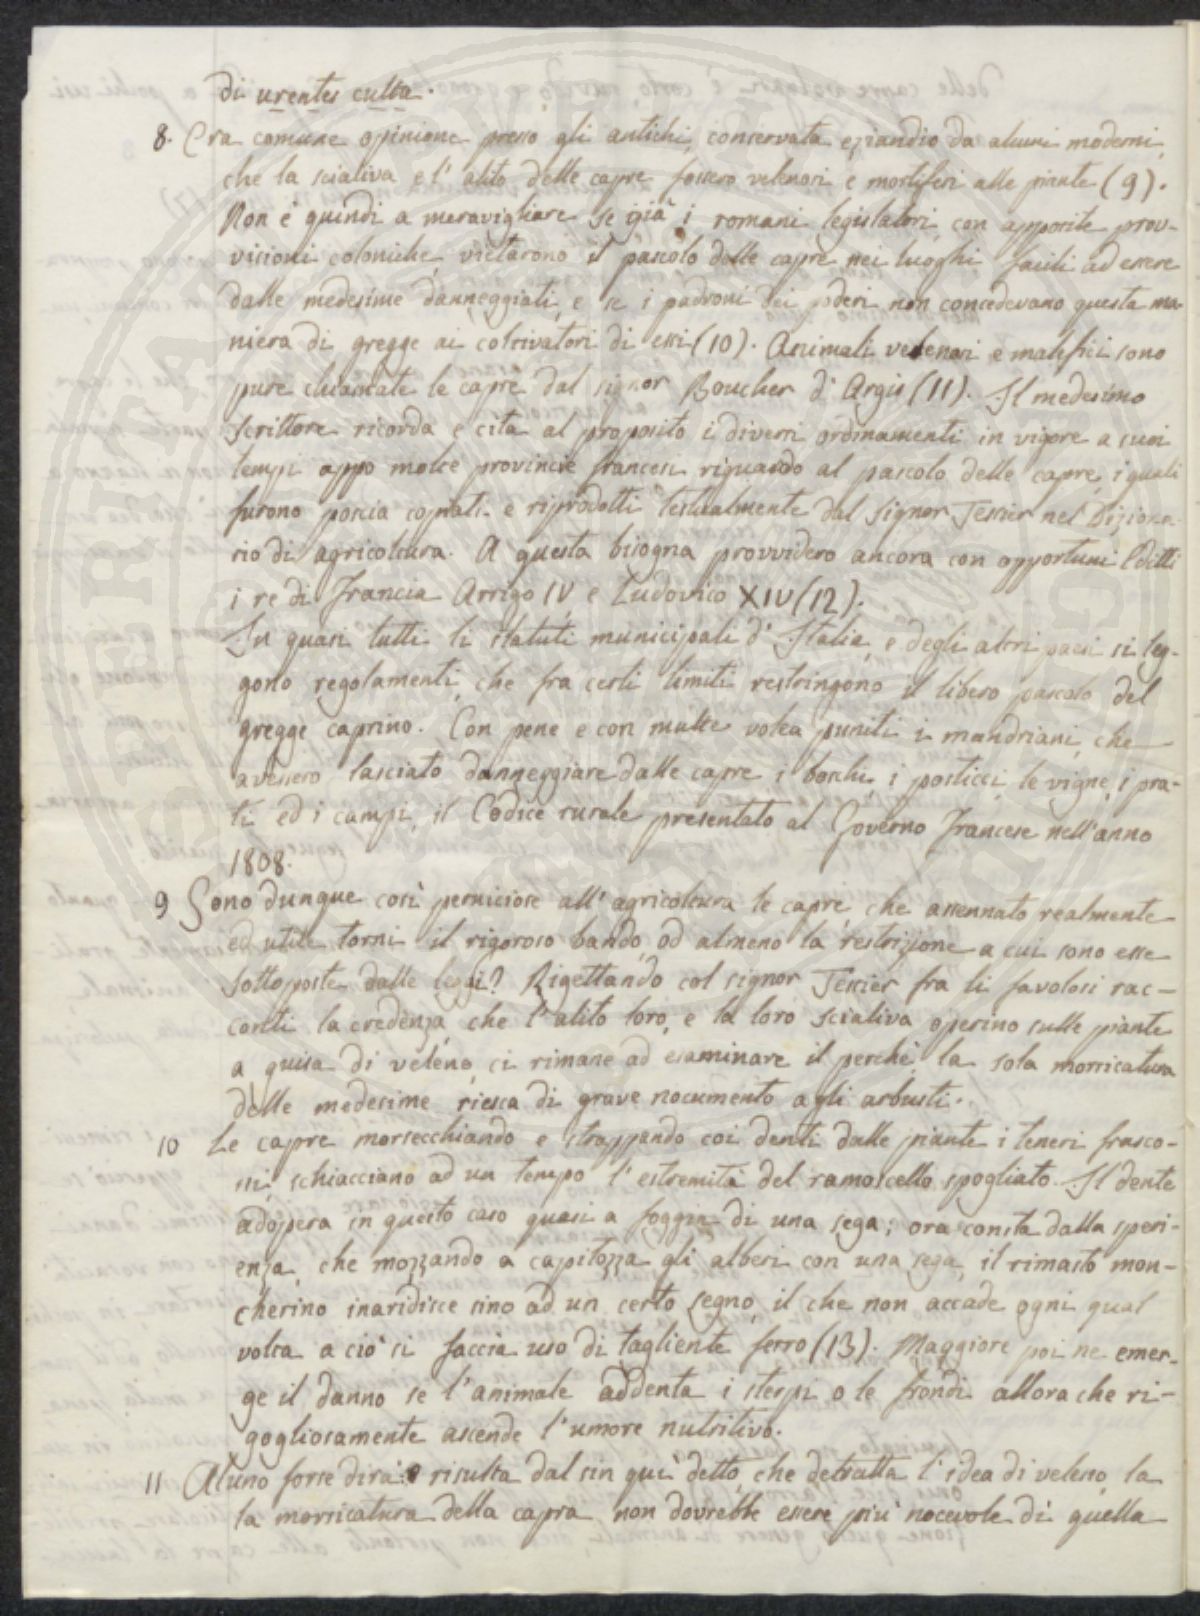 di urentes culta.
8. Era comune opinione presso gli antichi, conservata eziandio da alcuni moderni,
che la scialiva e l' alito delle capre fossero velenosi e mortiferi alle piante (9).
Non è quindi a meravigliare se già i romani legislatori con apposite prov-
visioni coloniche vietarono il pascolo delle capre nei luoghi facili ad essere
dalle medesime danneggiati, e se i padroni dei poderi non concedevano questa ma-
niera di gregge ai coltivatori di essi (10). Animali velenosi e malefici sono
pure chiamate le capre dal signor Boucher d' Argis (11). Il medesimo
scrittore ricorda e cita al proposito i diversi ordinamenti in vigore a suoi
tempi appo molte provincie francesi riguardo al pascolo delle capre, i quali
furono poscia copiati e riprodotti testualmente dal signor Tessier nel Diziona-
rio di agricoltura. A questa bisogna provvidero ancora con opportuni Editti
i re di Francia Arrigo IV e Ludovico XIV (12).
In quasi tutti li statuti municipali d' Italia, e degli altri paesi si leg-
gono regolamenti, che fra certi limiti restringono il libero pascolo del
gregge caprino. Con pene e con multe volea puniti i mandriani, che
avessero lasciato danneggiare dalle capre i boschi, i posticci, le vigne, i pra-
ti ed i campi, il Codice rurale presentato al Governo Francese nell' anno
1808.
9 Sono dunque così perniciose all' agricoltura le capre che assennato realmente
ed utile torni il rigoroso bando, od almeno la restrizione a cui sono esse
sottoposte dalle leggi? Rigettando col signor Tessier fra li favolosi rac-
conti la credenza, che l' alito loro, e la loro scialiva operino sulle piante
a guisa di veleno, ci rimane ad esaminare il perchè la sola morsicatura
delle medesime riesca di grave nocumento agli arbusti.
10 Le capre morsecchiando e strappando coi denti dalle piante i teneri frasco-
ni, schiacciano ad un tempo l' estremità del ramoscello spogliato. Il dente
adopera in questo caso quasi a foggia di una sega; ora consta dalla speri-
enza, che mozzando a capitozza gli alberi con una sega, il rimasto mon-
cherino inaridisce sino ad un certo segno, il che non accade ogni qual
volta a ciò si faccia uso di tagliente ferro (13). Maggiore poi ne emer-
ge il danno se l' animale addenta i sterpi o le frondi allora che ri-
gogliosamente ascende l' umore nutritivo.
11 Alcuno forse dirà: risulta dal sin quì detto, che detratta l' idea di veleno, la
la morsicatura della capra non dovrebbe essere più nocevole di quella